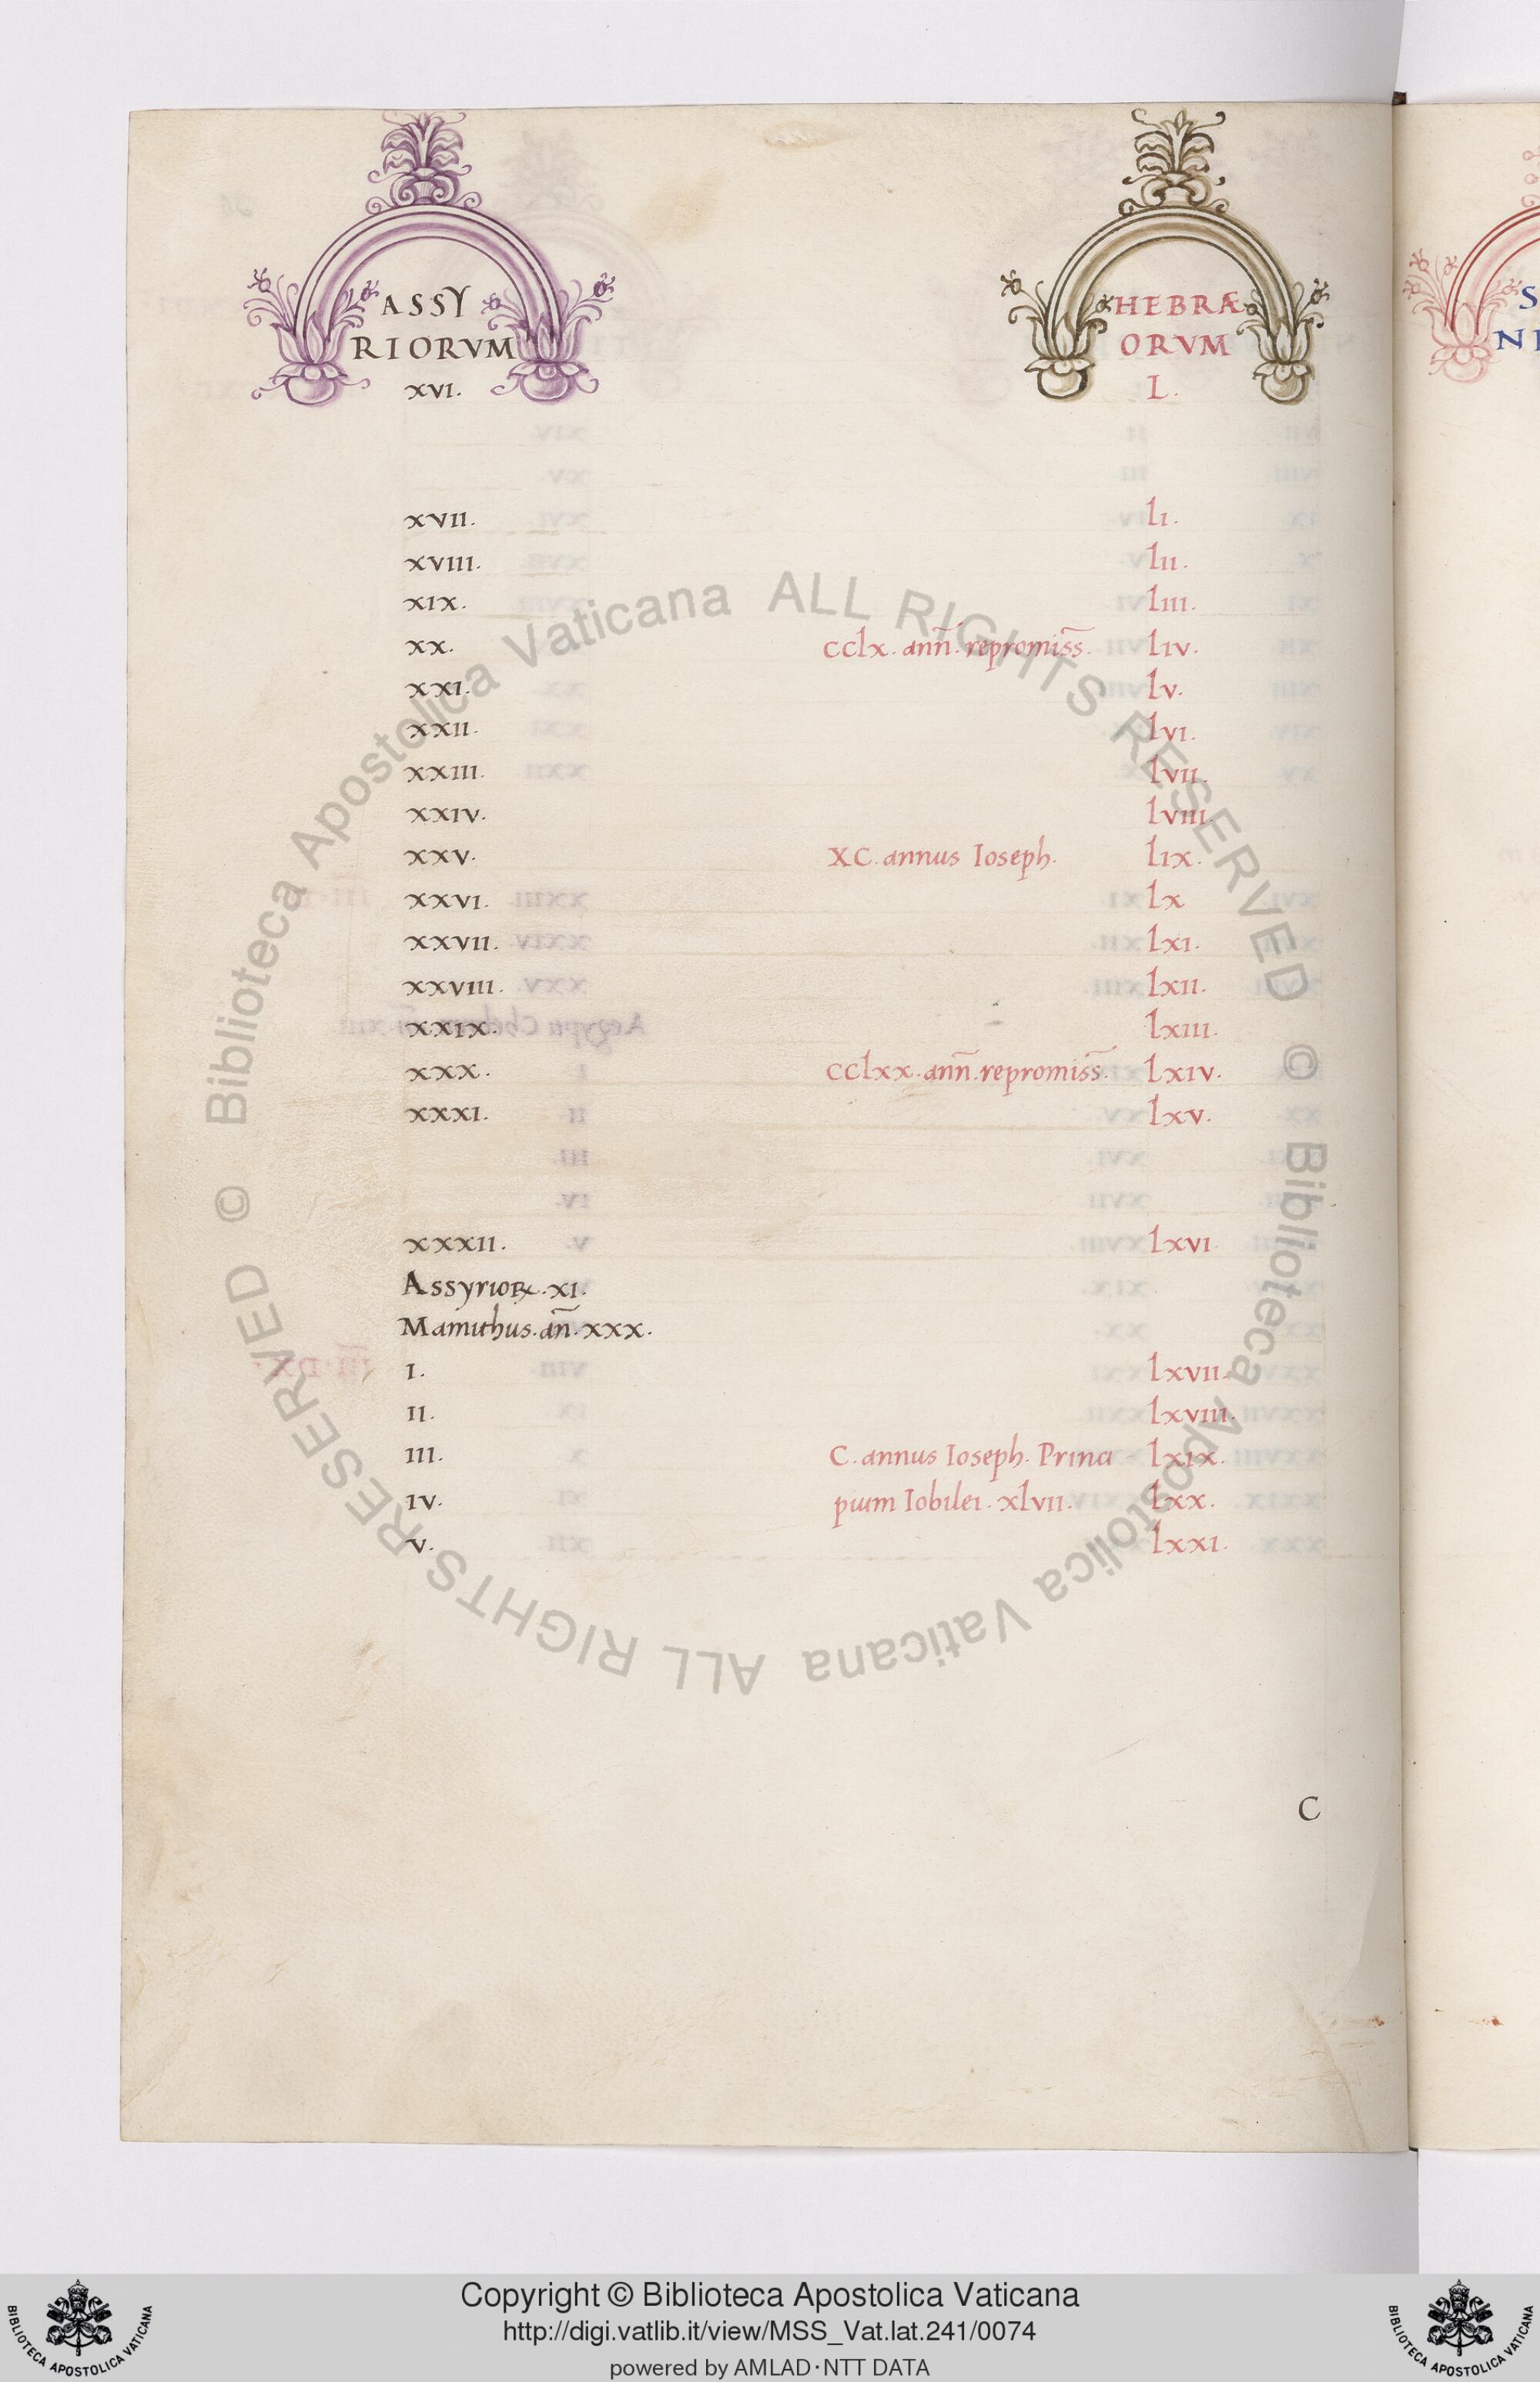 ASSY HEBRÆ
RIORVM ORVM
XVI. L.
XVII. lI.
XVIII. lII.
XIX. lIII.
XX. cclx. ann̄. repromiss̄. lIV.
XXI. lV.
XXII. lVI.
XXIII. lVII.
XXIV. lVIII.
XXV. XC. annus Ioseph. lIX.
XXVI. lX
XXVII. lXI.
XXVIII. lXII.
XXIX. lXIII.
XXX. cclxx. ann̄. repromiss̄. lXIV.
XXXI. lXV.
XXXII. lXVI.
Assyrioꝝ. XI.
Mamithus. an̄. XXX.
I. lXVII.
II. lXVIII.
III. C. annus Ioseph. Princi lXIX.
IV. pium Iobilei. xlvii. lXX.
V. lXXI.
C
S
NI
© Biblioteca Apostolica Vaticana ALL RIGHTS RESERVED
© Biblioteca Apostolica Vaticana ALL RIGHTS RESERVED
Copyright © Biblioteca Apostolica Vaticana
http://digi.vatlib.it/view/MSS_Vat.lat.241/0074
powered by AMLAD·NTT DATA
BIBLIOTECA APOSTOLICA VATICANA
BIBLIOTECA APOSTOLICA VATICANA